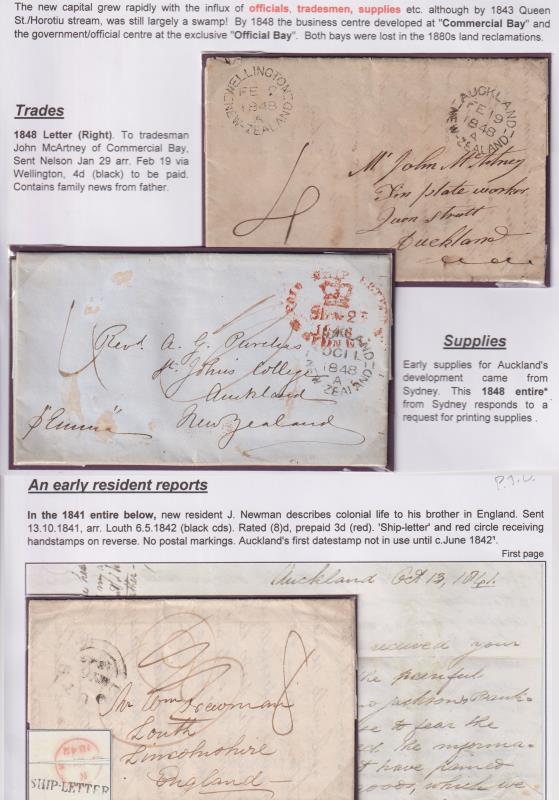 The new capital grew rapidly with the influx of officials, tradesmen, supplies etc. although by 1843 Queen
St./Horotiu stream, was still largely a swamp! By 1848 the business centre developed at "Commercial Bay" and
the government/official centre at the exclusive "Official Bay". Both bays were lost in the 1880s land reclamations.
Trades
1848 Letter (Right). To tradesman
John McArtney of Commercial Bay,
Sent Nelson Jan 29 arr. Feb 19 via
Wellington, 4d (black) to be paid.
Contains family news from father.
WELLINGTON
FE 9
1848
A
NEW-ZEALAND
AUCKLAND
FE 19
1848
A
NEW-ZEALAND
4
Mr John McArtney
Tin plate worker
Queen Street
Auckland
PAID SHIP LETTER
SYDNEY
AUCKLAND
OC 11
1848
A
NEW-ZEALAND
Revd. A. G. Purchas
St. Johns College
Auckland
New Zealand
"Emma"
Supplies
Early supplies for Auckland's
development came from
Sydney. This 1848 entire*
from Sydney responds to a
request for printing supplies .
An early resident reports
P.T.O.
In the 1841 entire below, new resident J. Newman describes colonial life to his brother in England. Sent
13.10.1841, arr. Louth 6.5.1842 (black cds). Rated (8)d, prepaid 3d (red). 'Ship-letter' and red circle receiving
handstamps on reverse. No postal markings. Auckland's first datestamp not in use until c.June 1842¹.
First page
Auckland Oct 13, 1841.
received your
the painful
Jackson's Bank-
to fear the
the informa-
t have joined
goods, which we
8
Mr Wm Newman
Louth
Lincolnshire
England
1842
SHIP-LETTER